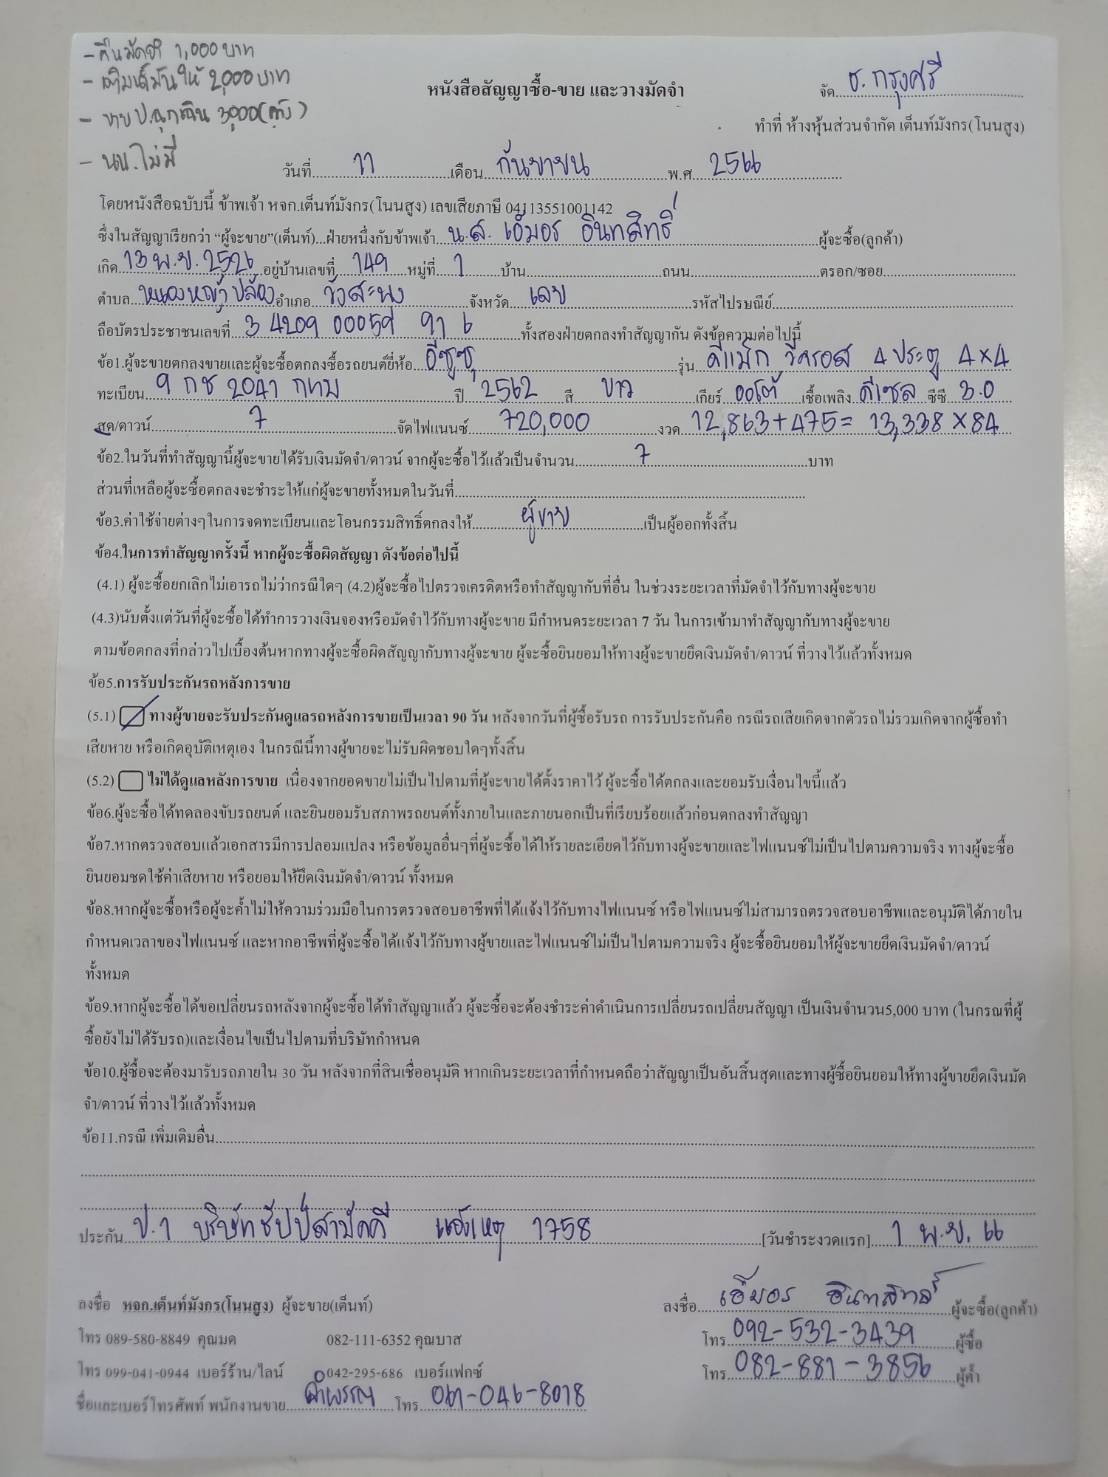 - คืนมัดจำ 1,000 บาท
- เติมน้ำมันให้ 2,000 บาท
- ขาย ป.ฉุกเฉิน 3,000
- นน. ไม่มี
หนังสือสัญญาซื้อ-ขาย และวางมัดจำ
จัด ธ. กรุงศรี
ทำที่ ห้างหุ้นส่วนจำกัด เต็นท์มังกร(โนนสูง)
วันที่ 11 เดือน กันยายน พ.ศ. 2566
โดยหนังสือฉบับนี้ ข้าพเจ้า หจก.เต็นท์มังกร(โนนสูง) เลขเสียภาษี 04113551001142
ซึ่งในสัญญาเรียกว่า “ผู้จะขาย”(เต็นท์)...ฝ่ายหนึ่งกับข้าพเจ้า น.ส. เอ็มอร อินทสิทธิ์ ผู้จะซื้อ(ลูกค้า)
เกิด 13 พ.ย. 2526 อยู่บ้านเลขที่ 149 หมู่ที่ 1 บ้าน ถนน ตรอก/ซอย
ตำบล หนองหญ้าปล้อง อำเภอ วังสะพุง จังหวัด เลย รหัสไปรษณีย์
ถือบัตรประชาชนเลขที่ 3 4209 00059 91 6 ทั้งสองฝ่ายตกลงทำสัญญากัน ดังข้อความต่อไปนี้
ข้อ1.ผู้จะขายตกลงขายและผู้จะซื้อตกลงซื้อรถยนต์ยี่ห้อ อีซูซุ รุ่น ดีแม็ก วีครอส 4 ประตู 4x4
ทะเบียน 9 กช 2041 กทม ปี 2562 สี ขาว เกียร์ ออโต้ เชื้อเพลิง ดีเซล ซีซี 3.0
สด/ดาวน์ 7 จัดไฟแนนซ์ 720,000 งวด 12,863+475= 13,338 x 84
ข้อ2.ในวันที่ทำสัญญานี้ผู้จะขายได้รับเงินมัดจำ/ดาวน์ จากผู้จะซื้อไว้แล้วเป็นจำนวน 7 บาท
ส่วนที่เหลือผู้จะซื้อตกลงจะชำระให้แก่ผู้จะขายทั้งหมดในวันที่
ข้อ3.ค่าใช้จ่ายต่างๆในการจดทะเบียนและโอนกรรมสิทธิ์ตกลงให้ ผู้ขาย เป็นผู้ออกทั้งสิ้น
ข้อ4.ในการทำสัญญาครั้งนี้ หากผู้จะซื้อผิดสัญญา ดังข้อต่อไปนี้
(4.1) ผู้จะซื้อยกเลิกไม่เอารถไม่ว่ากรณีใดๆ (4.2)ผู้จะซื้อไปตรวจเครดิตหรือทำสัญญากับที่อื่น ในช่วงระยะเวลาที่มัดจำไว้กับทางผู้จะขาย
(4.3)นับตั้งแต่วันที่ผู้จะซื้อได้ทำการวางเงินจองหรือมัดจำไว้กับทางผู้จะขาย มีกำหนดระยะเวลา 7 วัน ในการเข้ามาทำสัญญากับทางผู้จะขาย
ตามข้อตกลงที่กล่าวไปเบื้องต้นหากทางผู้จะซื้อผิดสัญญากับทางผู้จะขาย ผู้จะซื้อยินยอมให้ทางผู้จะขายยึดเงินมัดจำ/ดาวน์ ที่วางไว้แล้วทั้งหมด
ข้อ5.การรับประกันรถหลังการขาย
(5.1) ทางผู้ขายจะรับประกันดูแลรถหลังการขายเป็นเวลา 90 วัน หลังจากวันที่ผู้ซื้อรับรถ การรับประกันคือ กรณีรถเสียเกิดจากตัวรถไม่รวมเกิดจากผู้ซื้อทำ
เสียหาย หรือเกิดอุบัติเหตุเอง ในกรณีนี้ทางผู้ขายจะไม่รับผิดชอบใดๆทั้งสิ้น
(5.2) ไม่ได้ดูแลหลังการขาย เนื่องจากยอดขายไม่เป็นไปตามที่ผู้จะขายได้ตั้งราคาไว้ ผู้จะซื้อได้ตกลงและยอมรับเงื่อนไขนี้แล้ว
ข้อ6.ผู้จะซื้อได้ทดลองขับรถยนต์ และยินยอมรับสภาพรถยนต์ทั้งภายในและภายนอกเป็นที่เรียบร้อยแล้วก่อนตกลงทำสัญญา
ข้อ7.หากตรวจสอบแล้วเอกสารมีการปลอมแปลง หรือข้อมูลอื่นๆที่ผู้จะซื้อได้ให้รายละเอียดไว้กับทางผู้จะขายและไฟแนนซ์ไม่เป็นไปตามความจริง ทางผู้จะซื้อ
ยินยอมชดใช้ค่าเสียหาย หรือยอมให้ยึดเงินมัดจำ/ดาวน์ ทั้งหมด
ข้อ8.หากผู้จะซื้อหรือผู้จะค้ำไม่ให้ความร่วมมือในการตรวจสอบอาชีพที่ได้แจ้งไว้กับทางไฟแนนซ์ หรือไฟแนนซ์ไม่สามารถตรวจสอบอาชีพและอนุมัติได้ภายใน
กำหนดเวลาของไฟแนนซ์ และหากอาชีพที่ผู้จะซื้อได้แจ้งไว้กับทางผู้ขายและไฟแนนซ์ไม่เป็นไปตามความจริง ผู้จะซื้อยินยอมให้ผู้จะขายยึดเงินมัดจำ/ดาวน์
ทั้งหมด
ข้อ9.หากผู้จะซื้อได้ขอเปลี่ยนรถหลังจากผู้จะซื้อได้ทำสัญญาแล้ว ผู้จะซื้อจะต้องชำระค่าดำเนินการเปลี่ยนรถเปลี่ยนสัญญา เป็นเงินจำนวน5,000 บาท (ในกรณที่ผู้
ซื้อยังไม่ได้รับรถ)และเงื่อนไขเป็นไปตามที่บริษัทกำหนด
ข้อ10.ผู้ซื้อจะต้องมารับรถภายใน 30 วัน หลังจากที่สินเชื่ออนุมัติ หากเกินระยะเวลาที่กำหนดถือว่าสัญญาเป็นอันสิ้นสุดและทางผู้ซื้อยินยอมให้ทางผู้ขายยึดเงินมัด
จำ/ดาวน์ ที่วางไว้แล้วทั้งหมด
ข้อ11.กรณี เพิ่มเติมอื่น
ประกัน ป.1 บริษัทชับบ์สามัคคี แจ้งเหตุ 1758 [วันชำระงวดแรก] 1 พ.ย. 66
ลงชื่อ หจก.เต็นท์มังกร(โนนสูง) ผู้จะขาย(เต็นท์) ลงชื่อ เอ็มอร อินทสิทธิ์ ผู้จะซื้อ(ลูกค้า)
โทร 089-580-8849 คุณมด 082-111-6352 คุณบาส โทร 092-532-3439 ผู้ซื้อ
โทร 099-041-0944 เบอร์ร้าน/ไลน์ 042-295-686 เบอร์แฟกซ์ โทร 082-881-3856 ผู้ค้ำ
ชื่อและเบอร์โทรศัพท์ พนักงานขาย โทร 061-046-8018